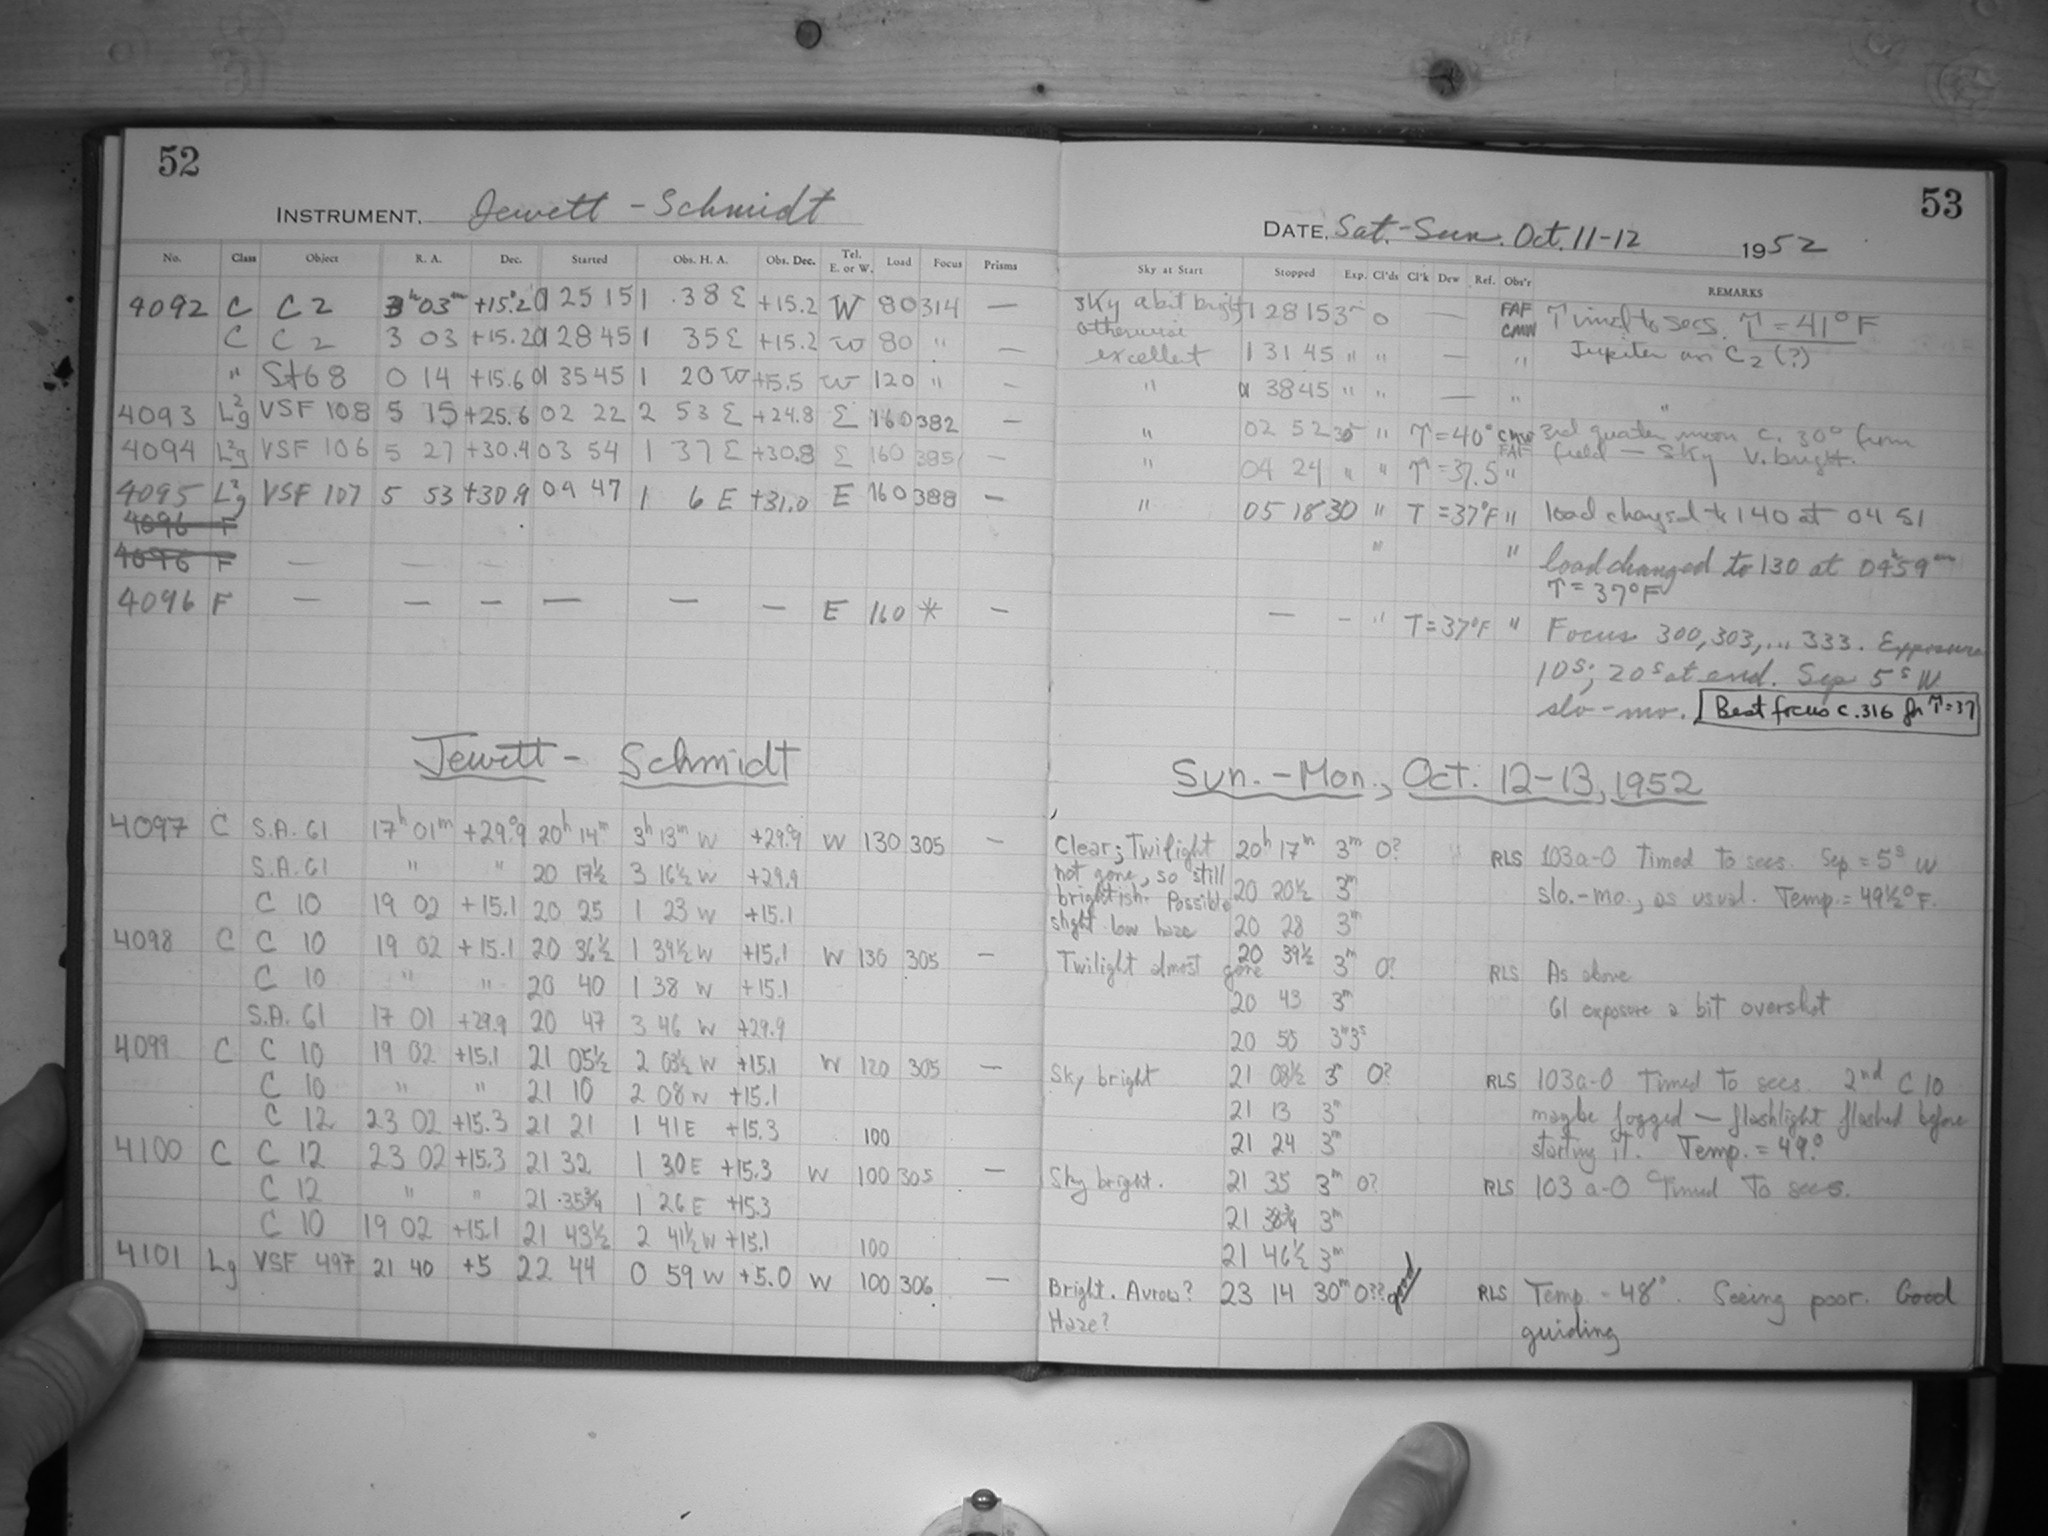 52
INSTRUMENT. Jewett - Schmidt
No. Class Object R. A. Dec. Started Obs. H. A. Obs. Dec. Tel. E. or W. Load Focus Prisms
4092 C C 2 3h 03m +15.2 01 25 15 1 .38 E +15.2 W 80 314 —
C C 2 3 03 +15.2 01 28 45 1 35 E +15.2 W 80 " —
" St 68 0 14 +15.6 01 35 45 1 20 W +15.5 W 120 " —
4093 L2g VSF 108 5 15 +25.6 02 22 2 53 E +24.8 E 160 382 —
4094 L2g VSF 106 5 27 +30.4 03 54 1 37 E +30.8 E 160 385
4095 L2g VSF 107 5 53 +30.9 04 47 1 6 E +31.0 E 160 388 —
4096 F
4096 F — — —
4096 F — — — — — — E 160 * —
Jewett - Schmidt
4097 C S.A. 61 17h 01m +29.9 20h 14m 3h 13m W +29.9 W 130 305 —
S.A. 61 " " 20 17½ 3 16½ W +29.9
C 10 19 02 +15.1 20 25 1 23 W +15.1
4098 C C 10 19 02 +15.1 20 36½ 1 34½ W +15.1 W 130 305 —
C 10 " " 20 40 1 38 W +15.1
S.A. 61 17 01 +29.9 20 47 3 46 W +29.9
4099 C C 10 19 02 +15.1 21 05½ 2 03½ W +15.1 W 120 305 —
C 10 " " 21 10 2 08 W +15.1
C 12 23 02 +15.3 21 21 1 41 E +15.3 100
4100 C C 12 23 02 +15.3 21 32 1 30 E +15.3 W 100 305 —
C 12 " " 21 35¾ 1 26 E +15.3
C 10 19 02 +15.1 21 43½ 2 41½ W +15.1 100
4101 Lg VSF 497 21 40 +5 22 44 0 59 W +5.0 W 100 306 —
53
DATE. Sat.-Sun. Oct. 11-12 1952
Sky at Start Stopped Exp. Cl'ds Cl'k Dew Ref. Obs'r REMARKS
Sky a bit bright 1 28 15 3m 0 — FAF CMW Timed to secs. T = 41° F
otherwise
excellent 1 31 45 " " — " Jupiter on C2 (?)
" 01 38 45 " " — " "
" 02 52 30m " T = 40° CMW FAF 3rd quarter moon c. 30° from
" 04 24 " " T = 37.5 " field — Sky V. bright.
" 05 18 30 " T = 37°F " load changed to 140 at 04 51
" " load changed to 130 at 04h59m
T = 37°F
— - " T = 37°F " Focus 300, 303, ... 333. Exposures
10s; 20s at end. Sep 5s W
slo-mo. Best focus c. 316 for T = 37
Sun. - Mon., Oct. 12-13, 1952
Clear; Twilight 20h 17m 3m 0? RLS 103a-O Timed to secs. Sep = 5s W
not gone, so still
brightish. Possible 20 20½ 3m slo.-mo., as usual. Temp. = 49½° F.
slight low haze 20 28 3m
Twilight almost gone 20 39½ 3m 0? RLS As above
20 43 3m 61 exposure a bit overshot
20 50 3m3s
Sky bright 21 08½ 3m 0? RLS 103a-O Timed to secs. 2nd C 10
21 13 3m maybe fogged — flashlight flashed before
21 24 3m starting it. Temp. = 49°
Sky bright. 21 35 3m 0? RLS 103 a-O Timed To secs.
21 38¾ 3m
21 46½ 3m
Bright. Aurora? 23 14 30m 0?? good RLS Temp. = 48°. Seeing poor. Good
Haze? guiding